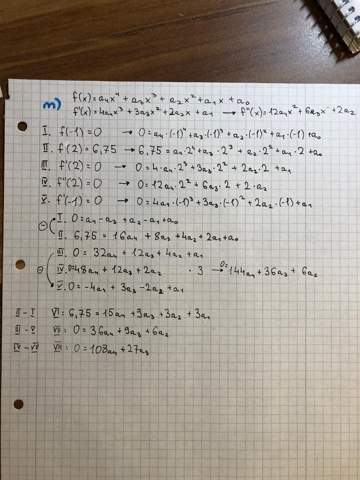 m) f(x) = a₄x⁴ + a₃x³ + a₂x² + a₁x + a₀
f'(x) = 4a₄x³ + 3a₃x² + 2a₂x + a₁ → f''(x) = 12a₄x² + 6a₃x + 2a₂
I. f(-1) = 0 → 0 = a₄·(-1)⁴ + a₃·(-1)³ + a₂·(-1)² + a₁·(-1) + a₀
II. f(2) = 6,75 → 6,75 = a₄·2⁴ + a₃·2³ + a₂·2² + a₁·2 + a₀
III. f'(2) = 0 → 0 = 4·a₄·2³ + 3a₃·2² + 2a₂·2 + a₁
IV. f''(2) = 0 → 0 = 12a₄·2² + 6a₃·2 + 2·a₂
V. f'(-1) = 0 → 0 = 4a₄·(-1)³ + 3a₃·(-1)² + 2a₂·(-1) + a₁
⊖ I. 0 = a₄ - a₃ + a₂ - a₁ + a₀
II. 6,75 = 16a₄ + 8a₃ + 4a₂ + 2a₁ + a₀
III. 0 = 32a₄ + 12a₃ + 4a₂ + a₁
⊖ IV. 0=48a₄ + 12a₃ + 2a₂ ·3 → 0=144a₄ + 36a₃ + 6a₂
V. 0 = -4a₄ + 3a₃ - 2a₂ + a₁
II - I VI: 6,75 = 15a₄ + 9a₃ + 3a₂ + 3a₁
III - V VII: 0 = 36a₄ + 9a₃ + 6a₂
IV - VII VIII: 0 = 108a₄ + 27a₃